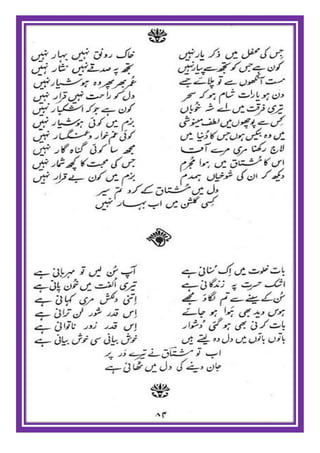 جس کی محفل میں ذکر یار نہیں
خاک رونق نہیں بہار نہیں
کون ہے جس کو تجھ سے پیار نہیں
تجھ پہ صدقے نہیں نثار نہیں
مست آنکھوں سے تو پلائے جسے
عمر بھر پھر وہ ہوشیار نہیں
دن ہو یا رات شام ہو کہ سحر
دل کو راحت نہیں قرار نہیں
تیری فرقت میں اے شہ خوباں
کون ہے جو کہ اشکبار نہیں
کس سے پوچھوں میں لطف مینوشی
بزم میں کوئی ہوشیار نہیں
میں وہ بیکس ہوں جس کا دنیا میں
کوئی غمخوار و غمگسار نہیں
لاج رکھنا مری مرے آقا
مجھ سا کوئی گناہ گار نہیں
اس کا مشتاق میں ہوا مجرم
جس کی محبت کا کچھ شمار نہیں
دیکھ کر ان کی شوخیاں ہمدم
بزم میں کون بے قرار نہیں
دل میں مشتاق کے کرو تم سیر
کسی گلشن میں اب بہار نہیں
بات خلوت میں اک سنانی ہے
آپ سن لیں تو مہربانی ہے
اشک حسرت پہ زندگانی ہے
تیری الفت میں خون پانی ہے
سن کے سینے سے تم لگا دو مجھے
اتنی دلکش مری کہانی ہے
ہوس دید بھی ہوا ہو جائے
اس قدر شور لن ترانی ہے
بات کرنی بھی ہو گئی دشوار
اس قدر زور ناتوانی ہے
باتوں باتوں میں دل وہ لیتے ہیں
خوش بیانی سی خوش بیانی ہے
اب تو مشتاق نے تیرے در پر
جان دینے کی دل میں ٹھانی ہے
۸۴